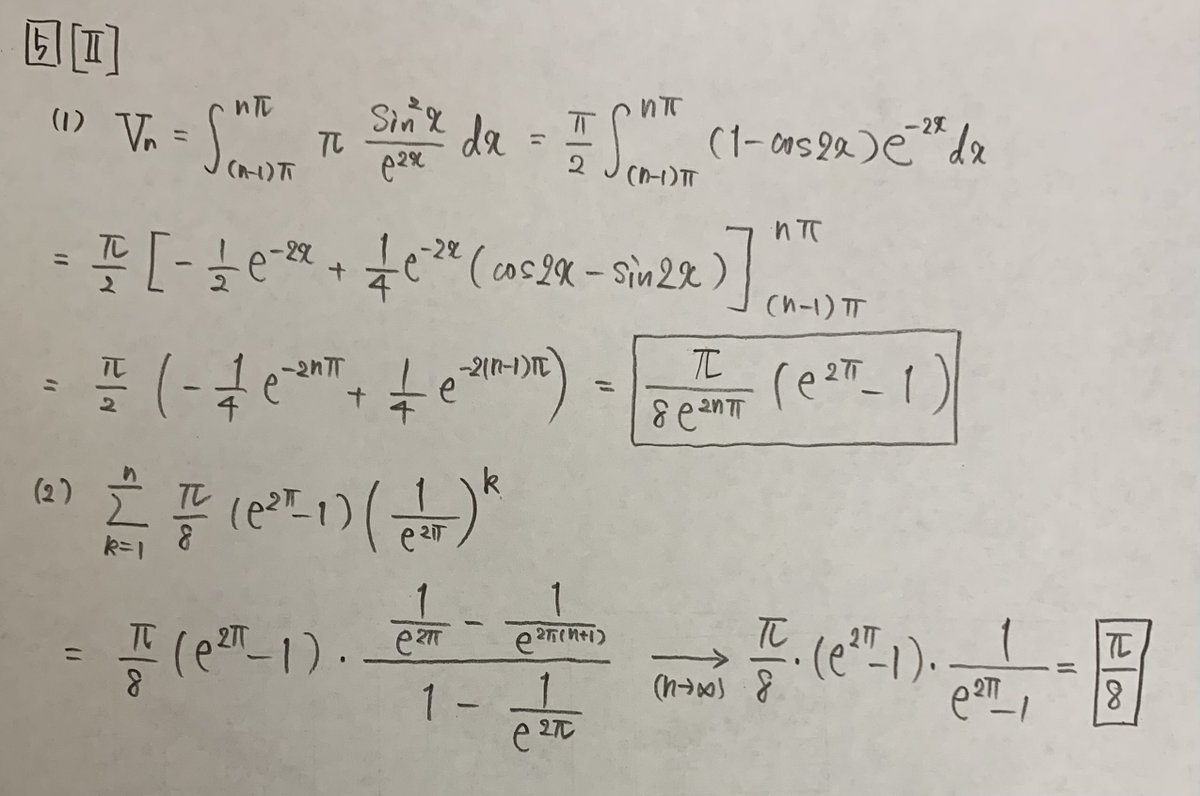 5 [II]
(1) Vₙ = ∫_{(n-1)π}^{nπ} π \frac{sin²x}{e^{2x}} dx = \frac{π}{2} ∫_{(n-1)π}^{nπ} (1-cos2x)e^{-2x}dx
= \frac{π}{2} [ -\frac{1}{2}e^{-2x} + \frac{1}{4}e^{-2x}(cos2x - sin2x) ]_{(n-1)π}^{nπ}
= \frac{π}{2} ( -\frac{1}{4}e^{-2nπ} + \frac{1}{4}e^{-2(n-1)π} ) = \frac{π}{8e^{2nπ}} (e^{2π} - 1)
(2) \sum_{k=1}^{n} \frac{π}{8} (e^{2π}-1) ( \frac{1}{e^{2π}} )^{k}
= \frac{π}{8} (e^{2π}-1) · \frac{\frac{1}{e^{2π}} - \frac{1}{e^{2π(n+1)}}}{1 - \frac{1}{e^{2π}}} ⟶_{(n→∞)} \frac{π}{8} · (e^{2π}-1) · \frac{1}{e^{2π}-1} = \frac{π}{8}